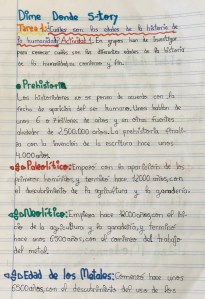 Dime Donde Story
Tarea 1: Cuales son las edades de la historia de
la humanidad? Actividad 1. En grupos, han de investigar
para conocer cuales son las diferentes edades de la historia
de la humanidad, sus comienzos y fin.
Prehistoria
Los historiadores no se ponen de acuerdo con la
fecha de aparición del ser humano. Unos hablan de
unos 6 o 7 millones de años y en otras fuentes
alrededor de 2.500.000 años. La prehistoria finali-
za con la invención de la escritura hace unos
4.000 años.
Paleolítico: Empezó con la aparición de los
primeros homínidos y terminó hace 12000 años, con
el descubrimiento de la agricultura y la ganadería.
Neolítico: Empieza hace 12000 años, con el ini-
cio de la agricultura y la ganadería, y terminó
hace unos 6500 años, con el comienzo del trabajo
del metal.
Edad de los Metales: Comenzó hace unos
6500 años, con el descubrimiento del uso de los